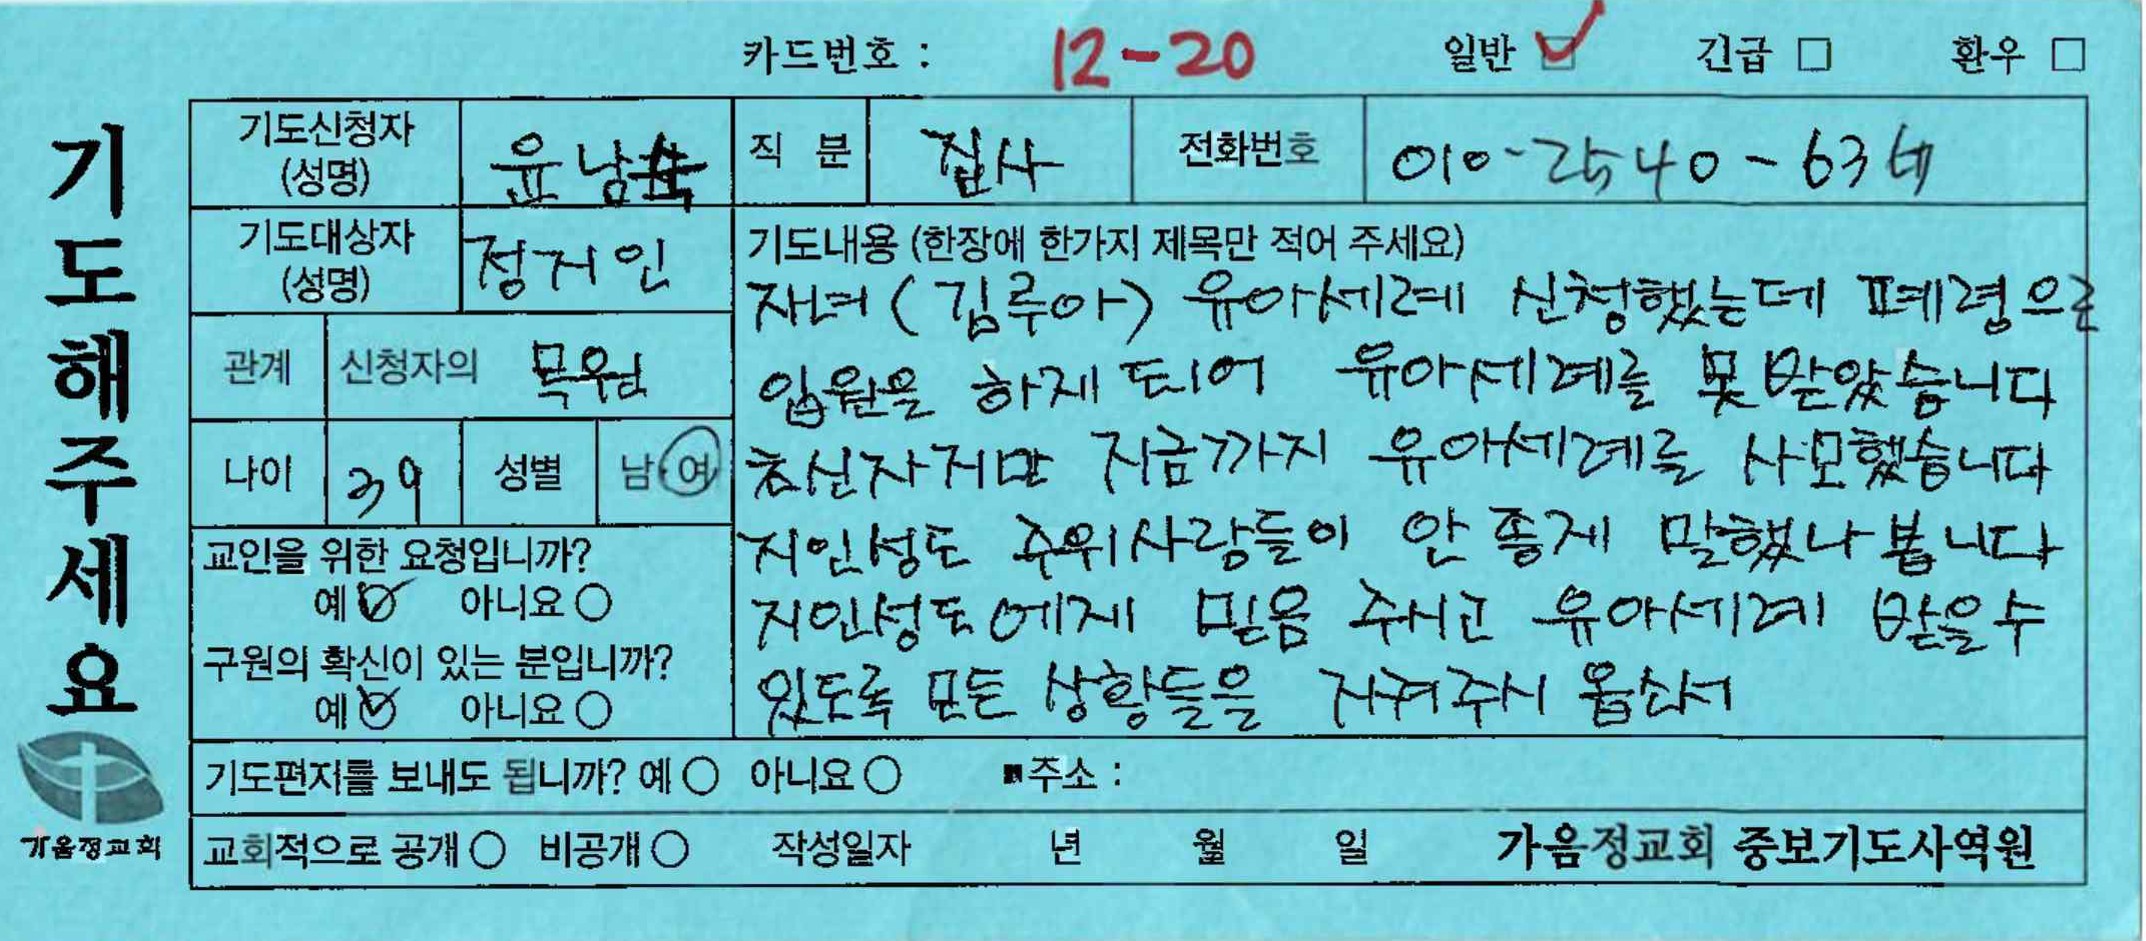 카드번호 : 12-20 일반 ☑ 긴급 □ 환우 □
기도해주세요
기도신청자 (성명) 윤남숙 직 분 집사 전화번호 010-2540-63
기도대상자 (성명) 정지인
관계 신청자의 목원
나이 39 성별 남·여
교인을 위한 요청입니까?
예 ☑ 아니요 ○
구원의 확신이 있는 분입니까?
예 ☑ 아니요 ○
기도내용 (한장에 한가지 제목만 적어 주세요)
자녀 (김루아) 유아세례 신청했는데 폐령으로
입원을 하게 되어 유아세례를 못 받았습니다
초신자지만 지금까지 유아세례를 사모했습니다
지인성도 주위사람들이 안 좋게 말했나 봅니다
지인성도에게 믿음 주시고 유아세례 받을수
있도록 모든 상황들을 지켜주시 옵소서
기도편지를 보내도 됩니까? 예 ○ 아니요 ○ ■주소 :
교회적으로 공개 ○ 비공개 ○ 작성일자 년 월 일 가음정교회 중보기도사역원
가음정교회